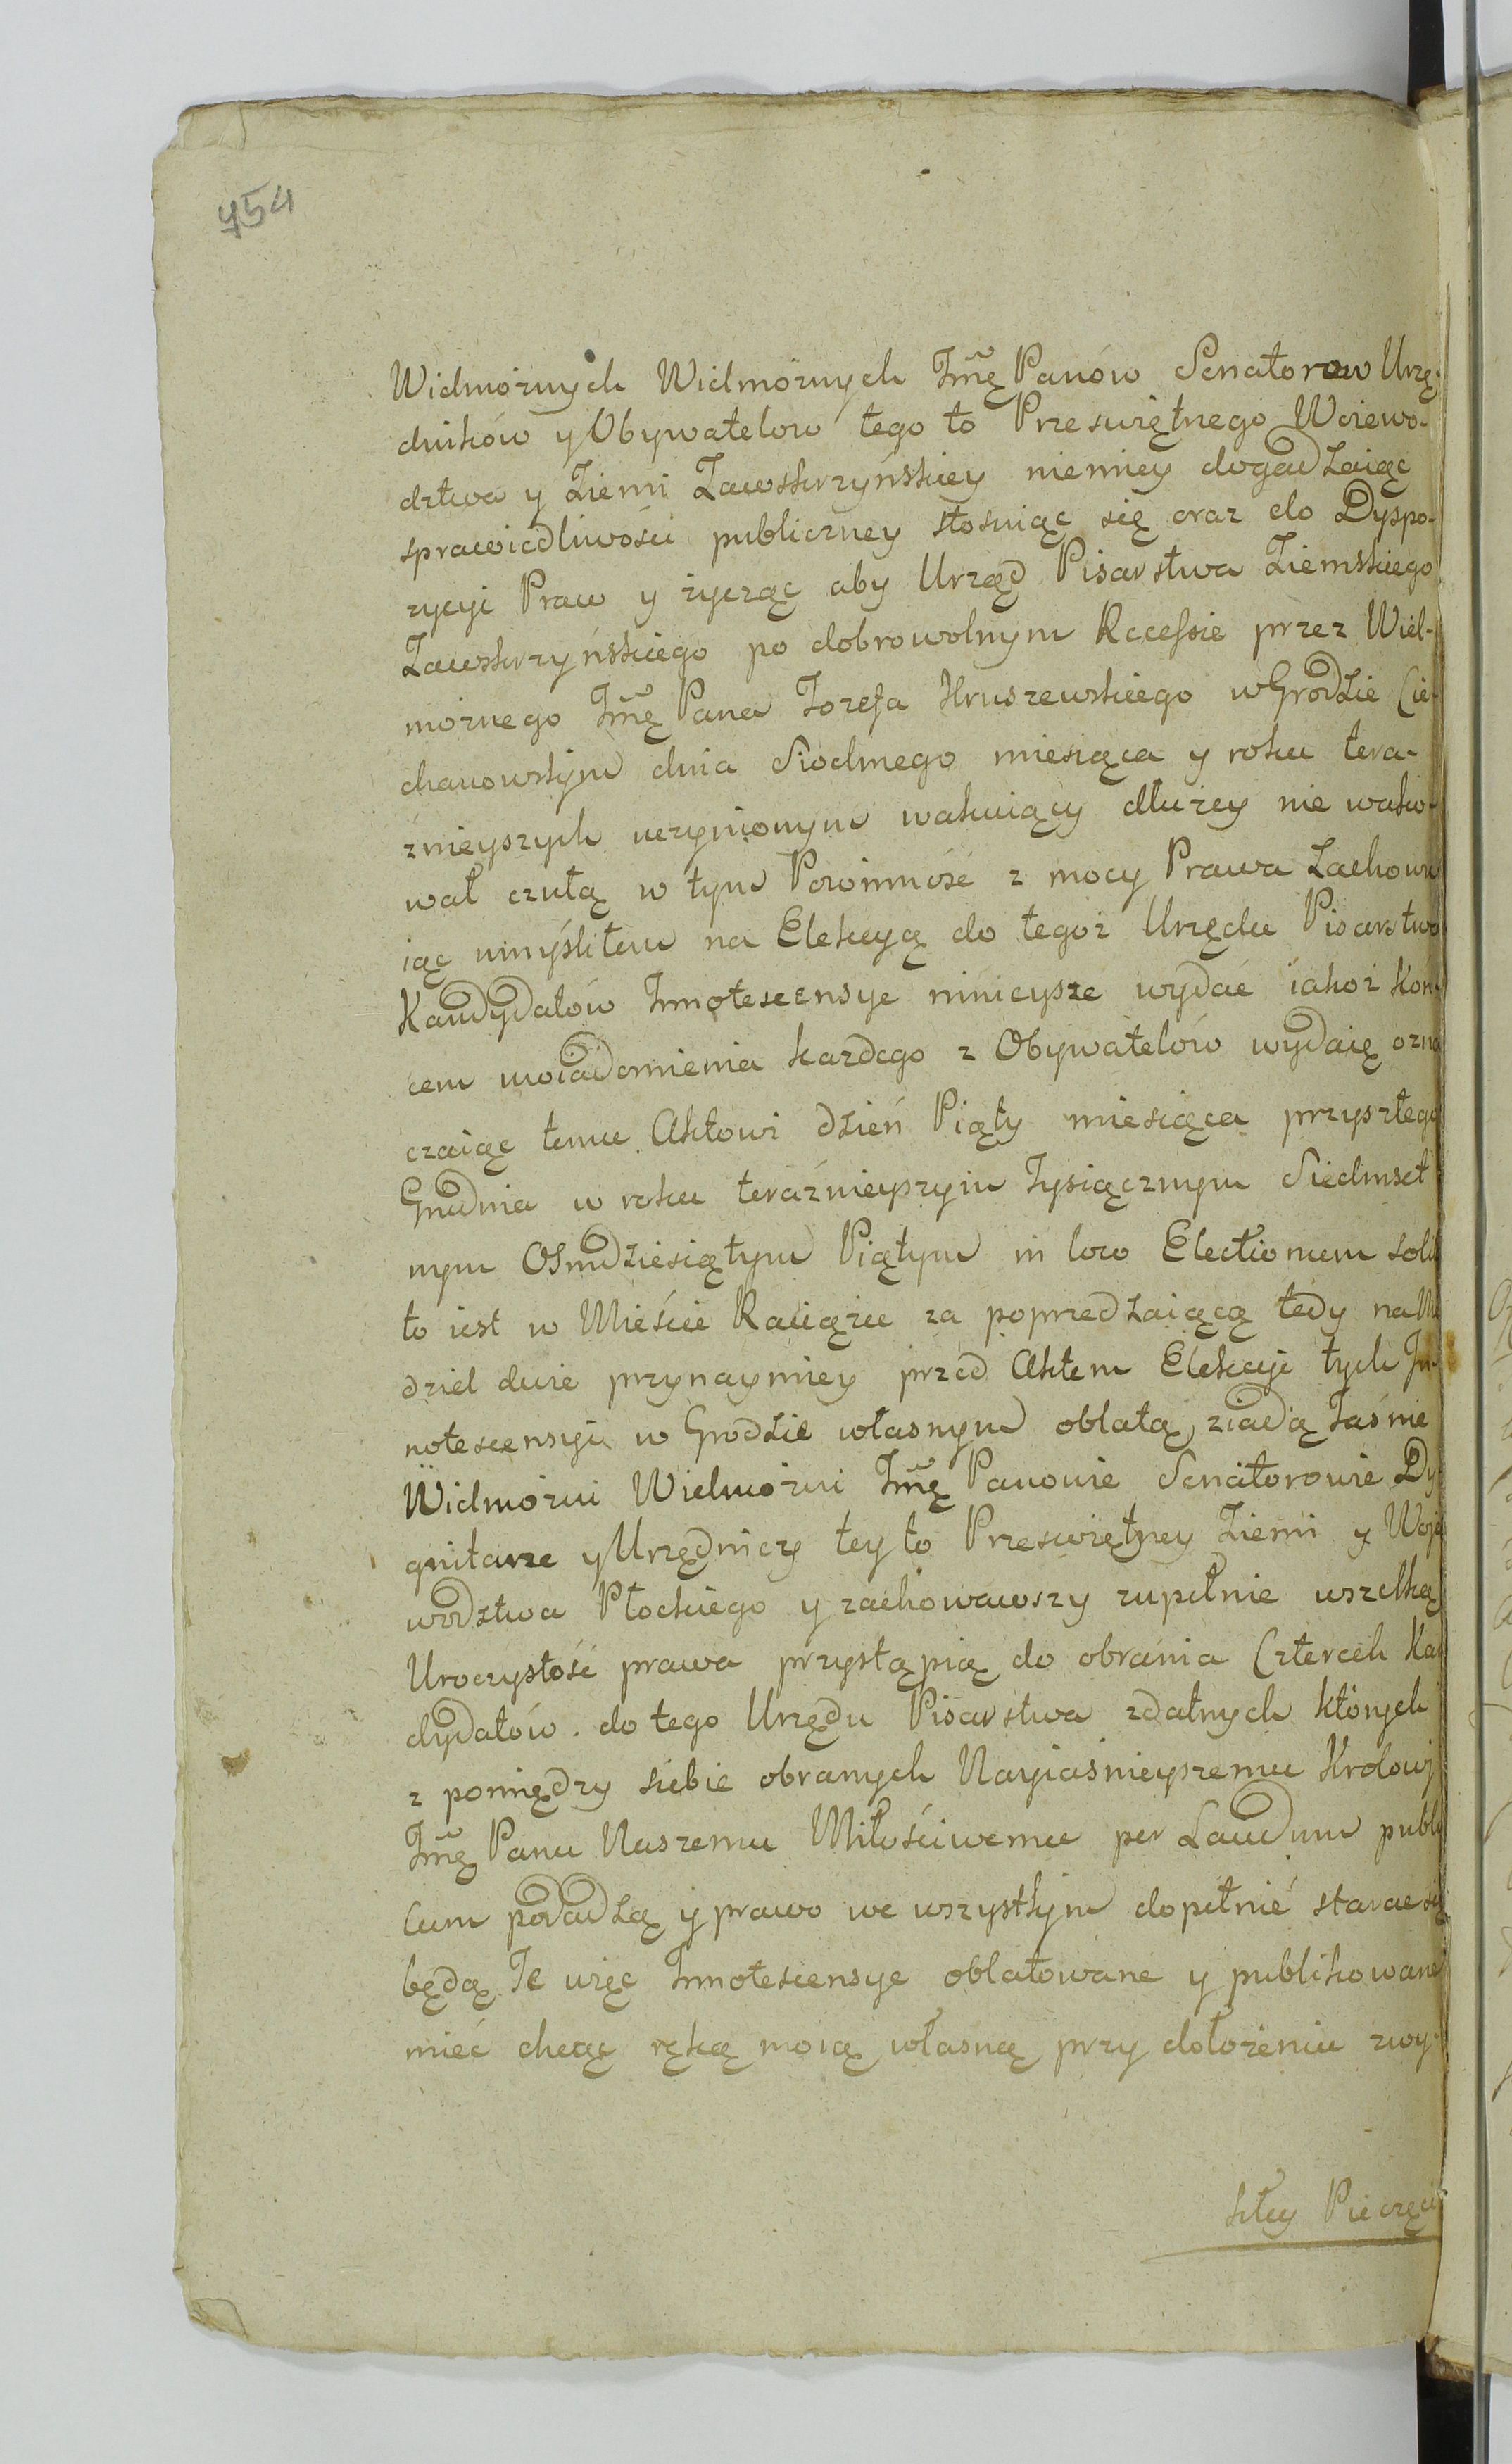 454
Wielmożnych Wielmożnych Jmę Panów Senatorow Urzę-
dników y Obywatelow tego to Przeświętnego Woiewo-
dztwa y Ziemi Zawskrzyńskiey niemiey dogadzaiąc
sprawiedliwości publiczney stosuiąc się oraz do Dyspo-
zycyi Praw y życząc aby Urząd Pisarstwa Ziemskiego
Zawskrzyńskiego po dobrowolnym Recessie przez Wiel-
możnego Jmę Pana Jozefa Kruszewskiego w Grodzie Cie-
chanowskym dnia Siodmego miesiąca y roku tera-
źnieyszych uczynionym wakuiący dłużey nie wako-
wał czułą w tym Powinność z mocy Prawa Zachowu
iąc umyśliłem na Elekcyą do tegoż Urzędu Pisarstwa
Kandydatów Innotescensye ninieysze wydać iakoż koń-
cem uwiadomienia każdego z Obywatelów wydaię ozna
czaiąc temu Aktowi dzień Piąty miesiąca przyszłego
Grudnia w roku teraźnieyszym Tysiącznym Siedmset
nym Osmdziesiątym Piątym in loco Electionum soli
to iest w Mieście Raciążu za poprzedzaiącą tedy na Nie
dziel dwie przynaymniey przed Aktem Elekcyi tych In-
notescensyi w Grodzie własnym oblatą, ziadą Jaśnie
Wielmożni Wielmożni Jmę Panowie Senatorowie Dy
gnitarze y Urzędnicy tey to Przeświętney Ziemi y Woje
wodztwa Płockiego y zachowawszy zupełnie wszelką
Uroczystość prawa przystąpią do obrania Czterech Kan
dydatów do tego Urzędu Pisarstwa zdatnych których
z pomiędzy siebie obranych Nayiaśnieyszemu Krolowi
Jmę Panu Naszemu Miłościwemu per Laudum publi
cum podadzą y prawo we wszystkym dopełnić starać się
będą Te więc Innotescensye oblatowane y publikowane
mieć chcąc ręką moią własną przy dołożeniu zwy-
kłey Pieczęci